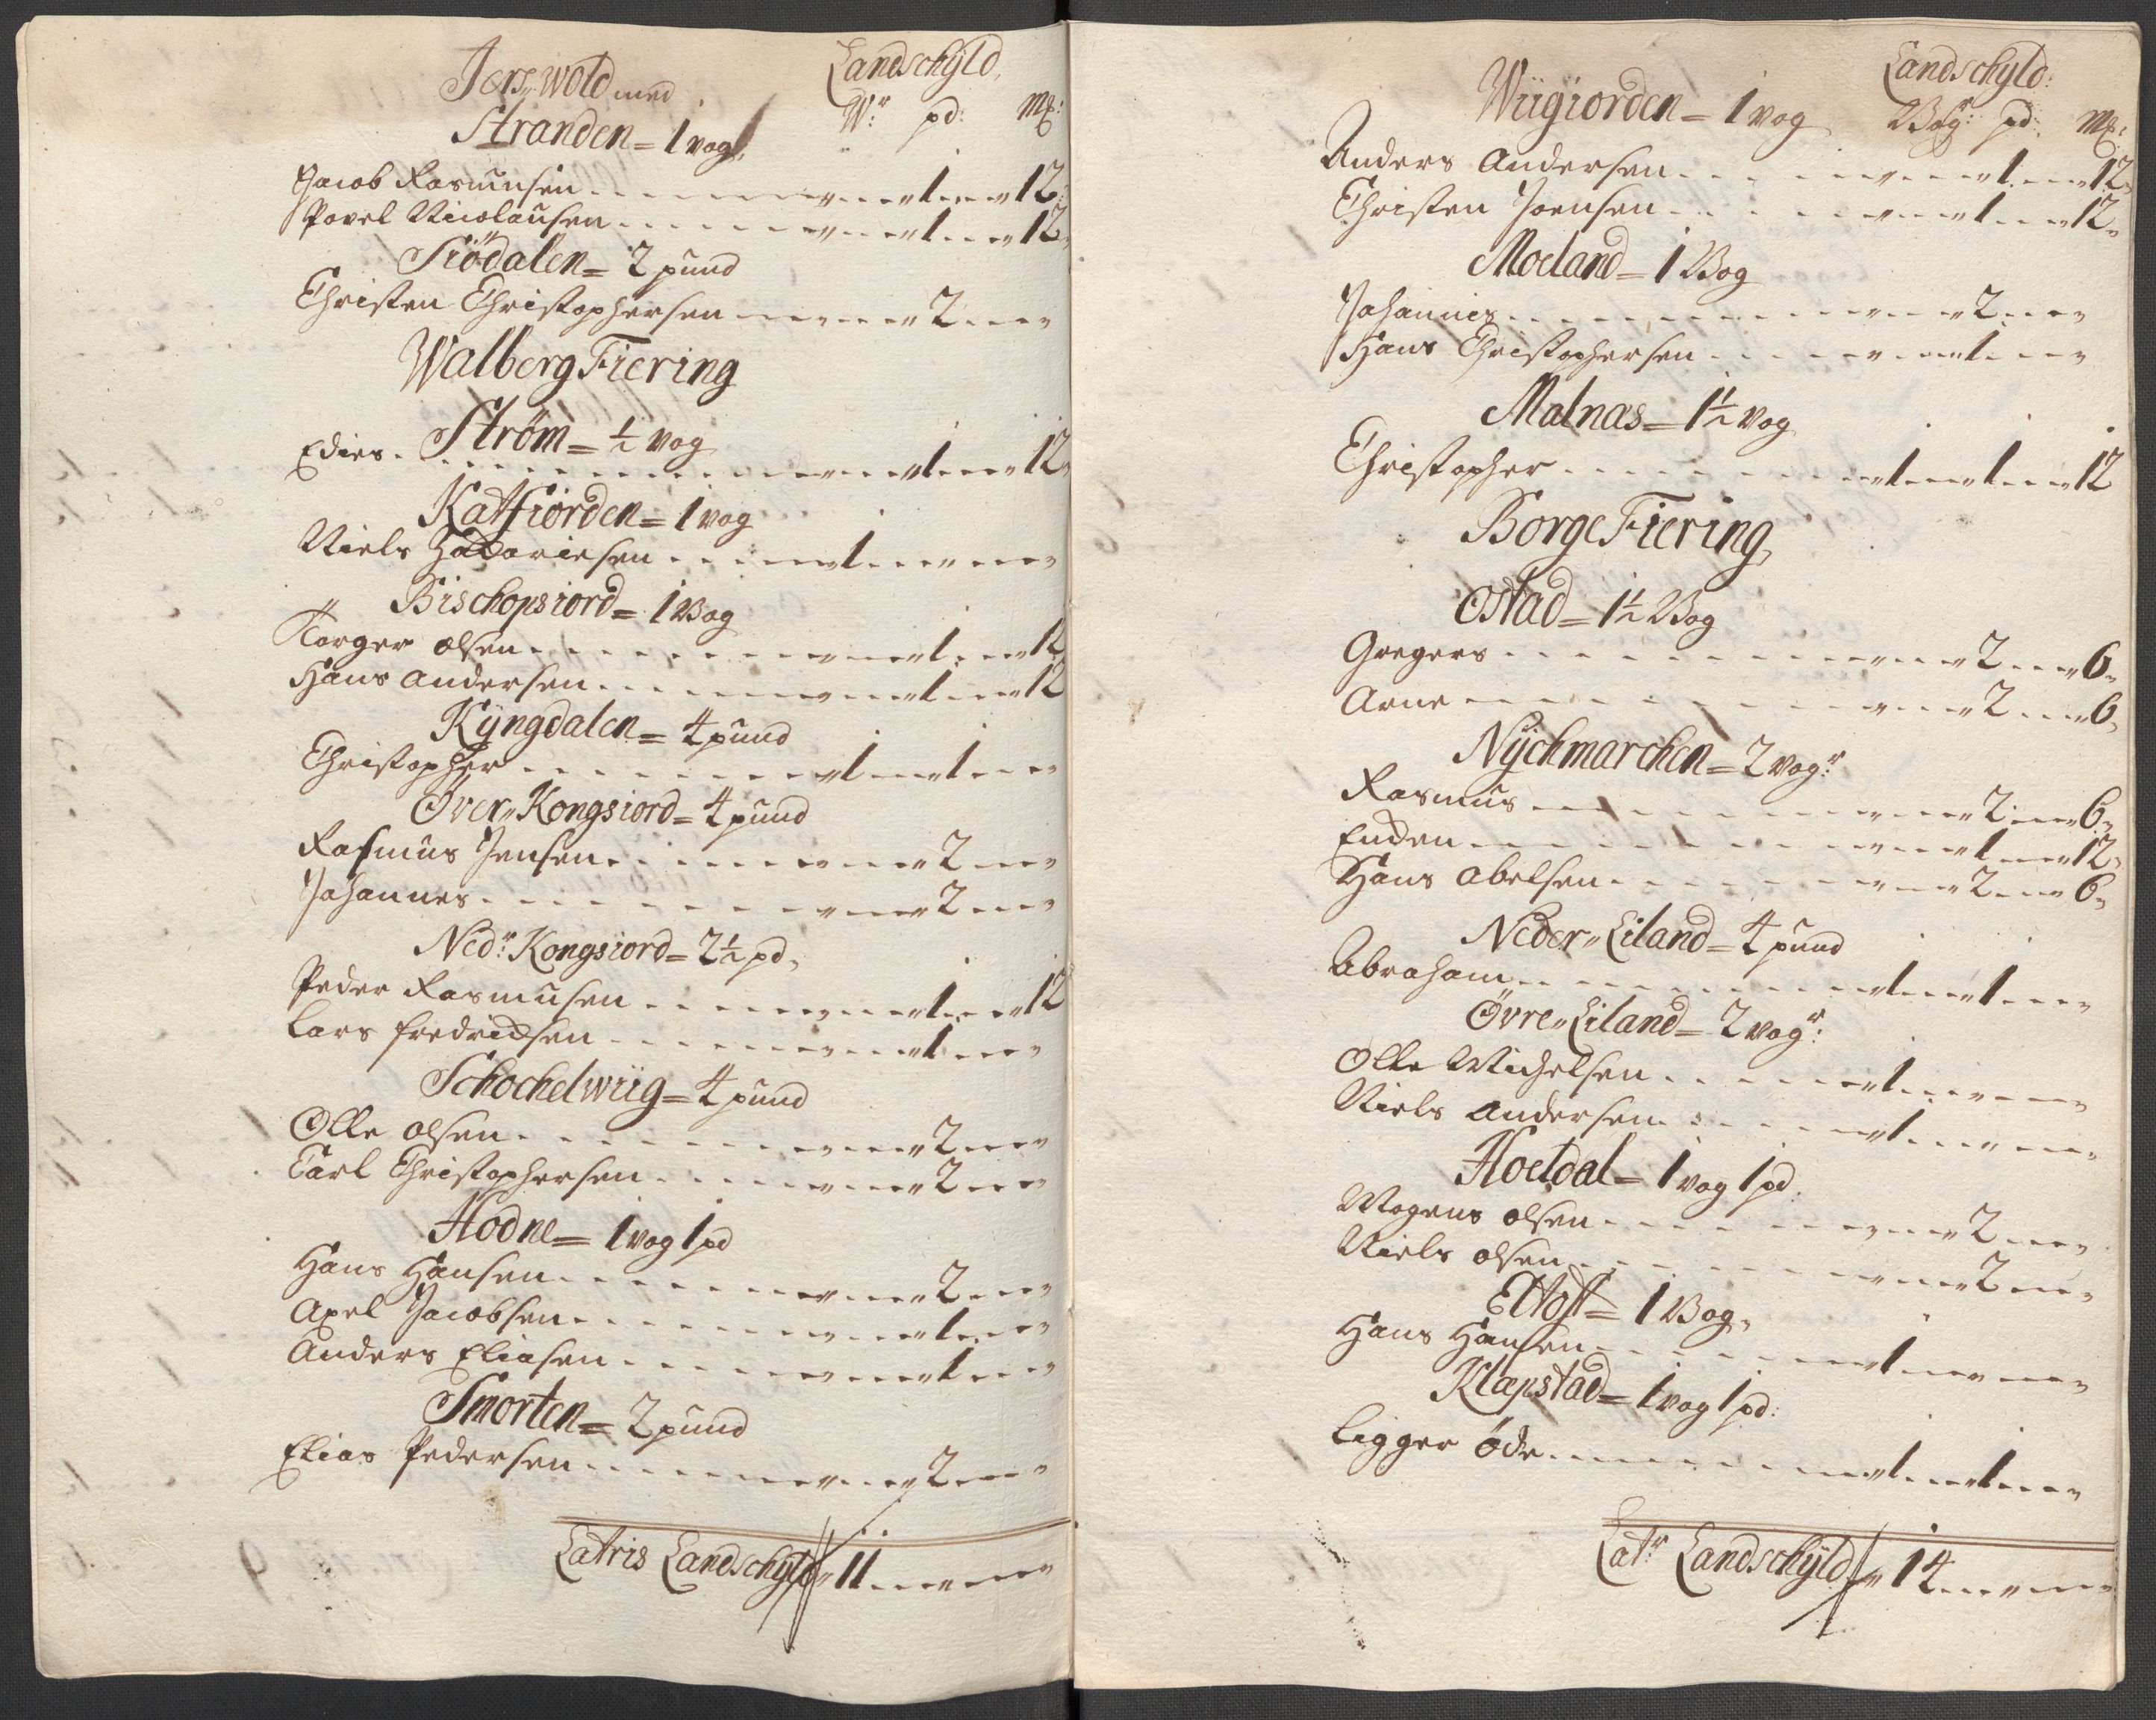 Jors-wold med
Landschyld,
Stranden = 1 vog,
W:r pd: Mk:
Jacob Rasmusen - - - 1 - 12
Povel Nicolausen - - - 1 - 12
Siödalen = 2 pund
Christen Christophersen - - - 2 - -
Walberg Fiering
Strøm = ½ vog
Edies - - - 1 - 12
Katfiorden = 1 vog
Niels Zacariesen - - - 1 - - -
Bischopsiord = 1 Vog
Torger olsen - - - 1 - 12
Hans Andersen - - - 1 - 12
Kyngdalen = 4 pund
Christopher - - - 1 - 1 - -
Över-Kongsiord = 4 pund
Rasmus Jensen - - - 2 - -
Johannes - - - 2 - -
Ned:r Kongsiord = 2½ pd,
Peder Rasmusen - - - 1 - 12
Lars fredricksen - - - 1 - -
Schochelwiig = 4 pund
Olle olsen - - - 2 - -
Carl Christophersen - - - 2 - -
Hodne = 1 vog 1 pd
Hans Hansen - - - 2 - -
Axel Jacobsen - - - 1 - -
Anders Eliasen - - - 1 - -
Smorten = 2 pund
Elias Pedersen - - - 2 - -
Latris Landschyld 11 - - -
Landschyld:
Wiigiorden = 1 vog
Vog:r pd: Mk:
Anders Andersen - - - 1 - 12
Christen Joensen - - - 1 - 12
Moeland = 1 Vog
Johannes - - - 2 - -
Hans Christophersen - - - 1 - -
Malnæs = 1½ Vog
Christopher - - - 1 - 1 - 12
Borge Fiering,
Ostad = 1½ Vog
Gregers - - - 2 - 6
Arne - - - 2 - 6
Nyckmarchen = 2 vog:r
Rasmus - - - 2 - 6
Enden - - - 1 - 12
Hans Abelsen - - - 2 - 6
Neder-Eiland = 4 pund
Abraham - - - 1 - 1 - -
Övre-Eiland = 2 vog:r
Olle Michelsen - - - 1 - - -
Niels Andersen - - - 1 - - -
Hoeldal = 1 vog 1 pd:
Mogens olsen - - - 2 - -
Niels olsen - - - 2 - -
Eltoft = 1 Vog,
Hans Hansen - - - 1 - - -
Klæpstad = 1 vog 1 pd:
Ligger öde - - - 1 - 1 - -
Lat:r Landschyld 14 - - -